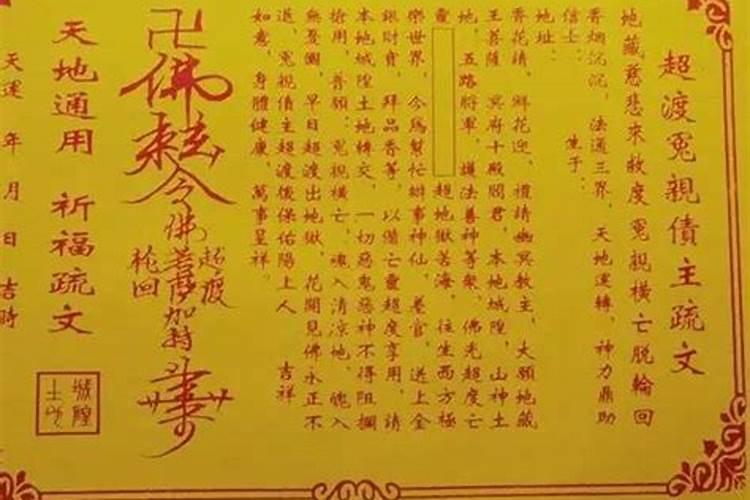 超渡冤親債主疏文
地藏慈悲來救度冤親橫亡脫輪回
香烟沉沉，法通三界，天地運轉，神力鼎助
信士：　生于：
地址：
香花請，鮮花迎，禮請幽冥教主，大願地藏
王菩薩　冥府十殿閻君，本地城隍，山神土
地，五路將軍，護法善神等衆，佛光超度亡
靈　超地獄苦海，往生西方極
樂世界，今爲幫忙辦事神仙，差官，送上金
銀財寶，拜品香等，以備亡靈超度享用，請
本地城隍土地轉交，一切惡鬼惡神不得阻攔
搶用，普願：冤親橫亡，魂入清凉地，魄入
無憂園，早日超渡出地獄，花開見佛永正不
退，冤親債主超渡後保佑陽上人　吉祥
如意，身體健康，萬事呈祥。
卍佛
令佛菩薩加持
超渡
輪回
天地通用　祈福疏文
城隍
土地
天運　年　月　日　吉時